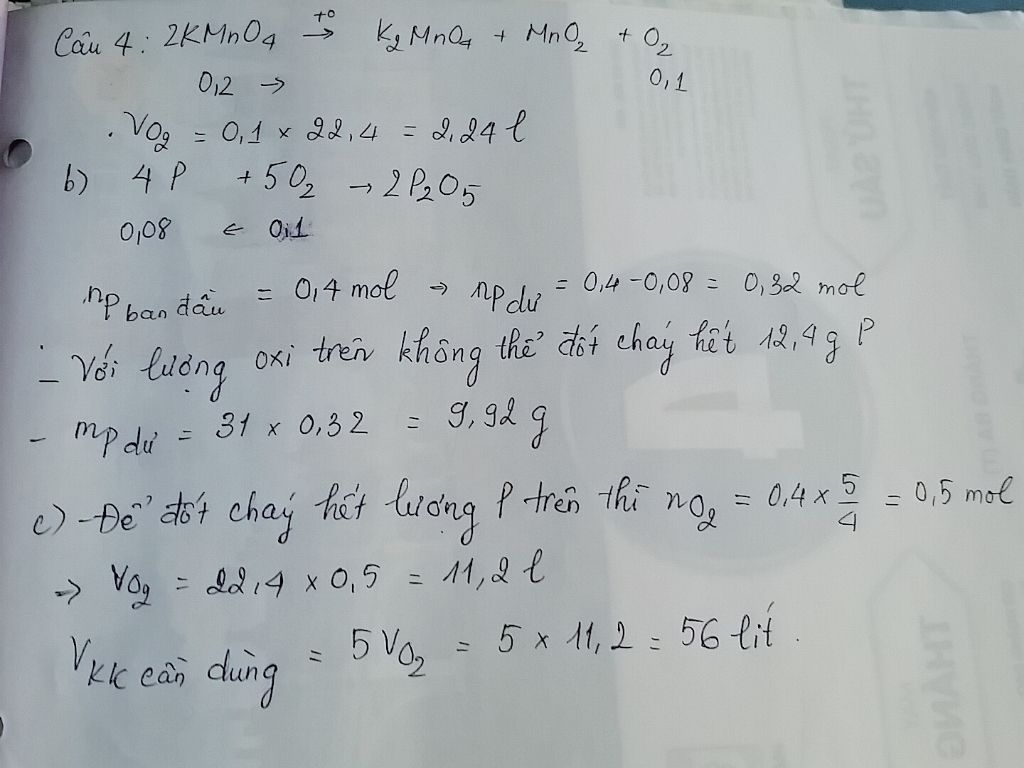 Câu 4 : 2KMnO₄ →(t°) K₂MnO₄ + MnO₂ + O₂
0,2 → 0,1
. VO₂ = 0,1 × 22,4 = 2,24 l
b) 4 P + 5O₂ → 2P₂O₅
0,08 ← 0,1
nP ban đầu = 0,4 mol → nP dư = 0,4 - 0,08 = 0,32 mol
- Với lượng oxi trên không thể đốt cháy hết 12,4 g P
- mP dư = 31 × 0,32 = 9,92 g
c) - Để đốt cháy hết lượng P trên thì nO₂ = 0,4 × 5/4 = 0,5 mol
→ VO₂ = 22,4 × 0,5 = 11,2 l
VKK cần dùng = 5 VO₂ = 5 × 11,2 = 56 lít .